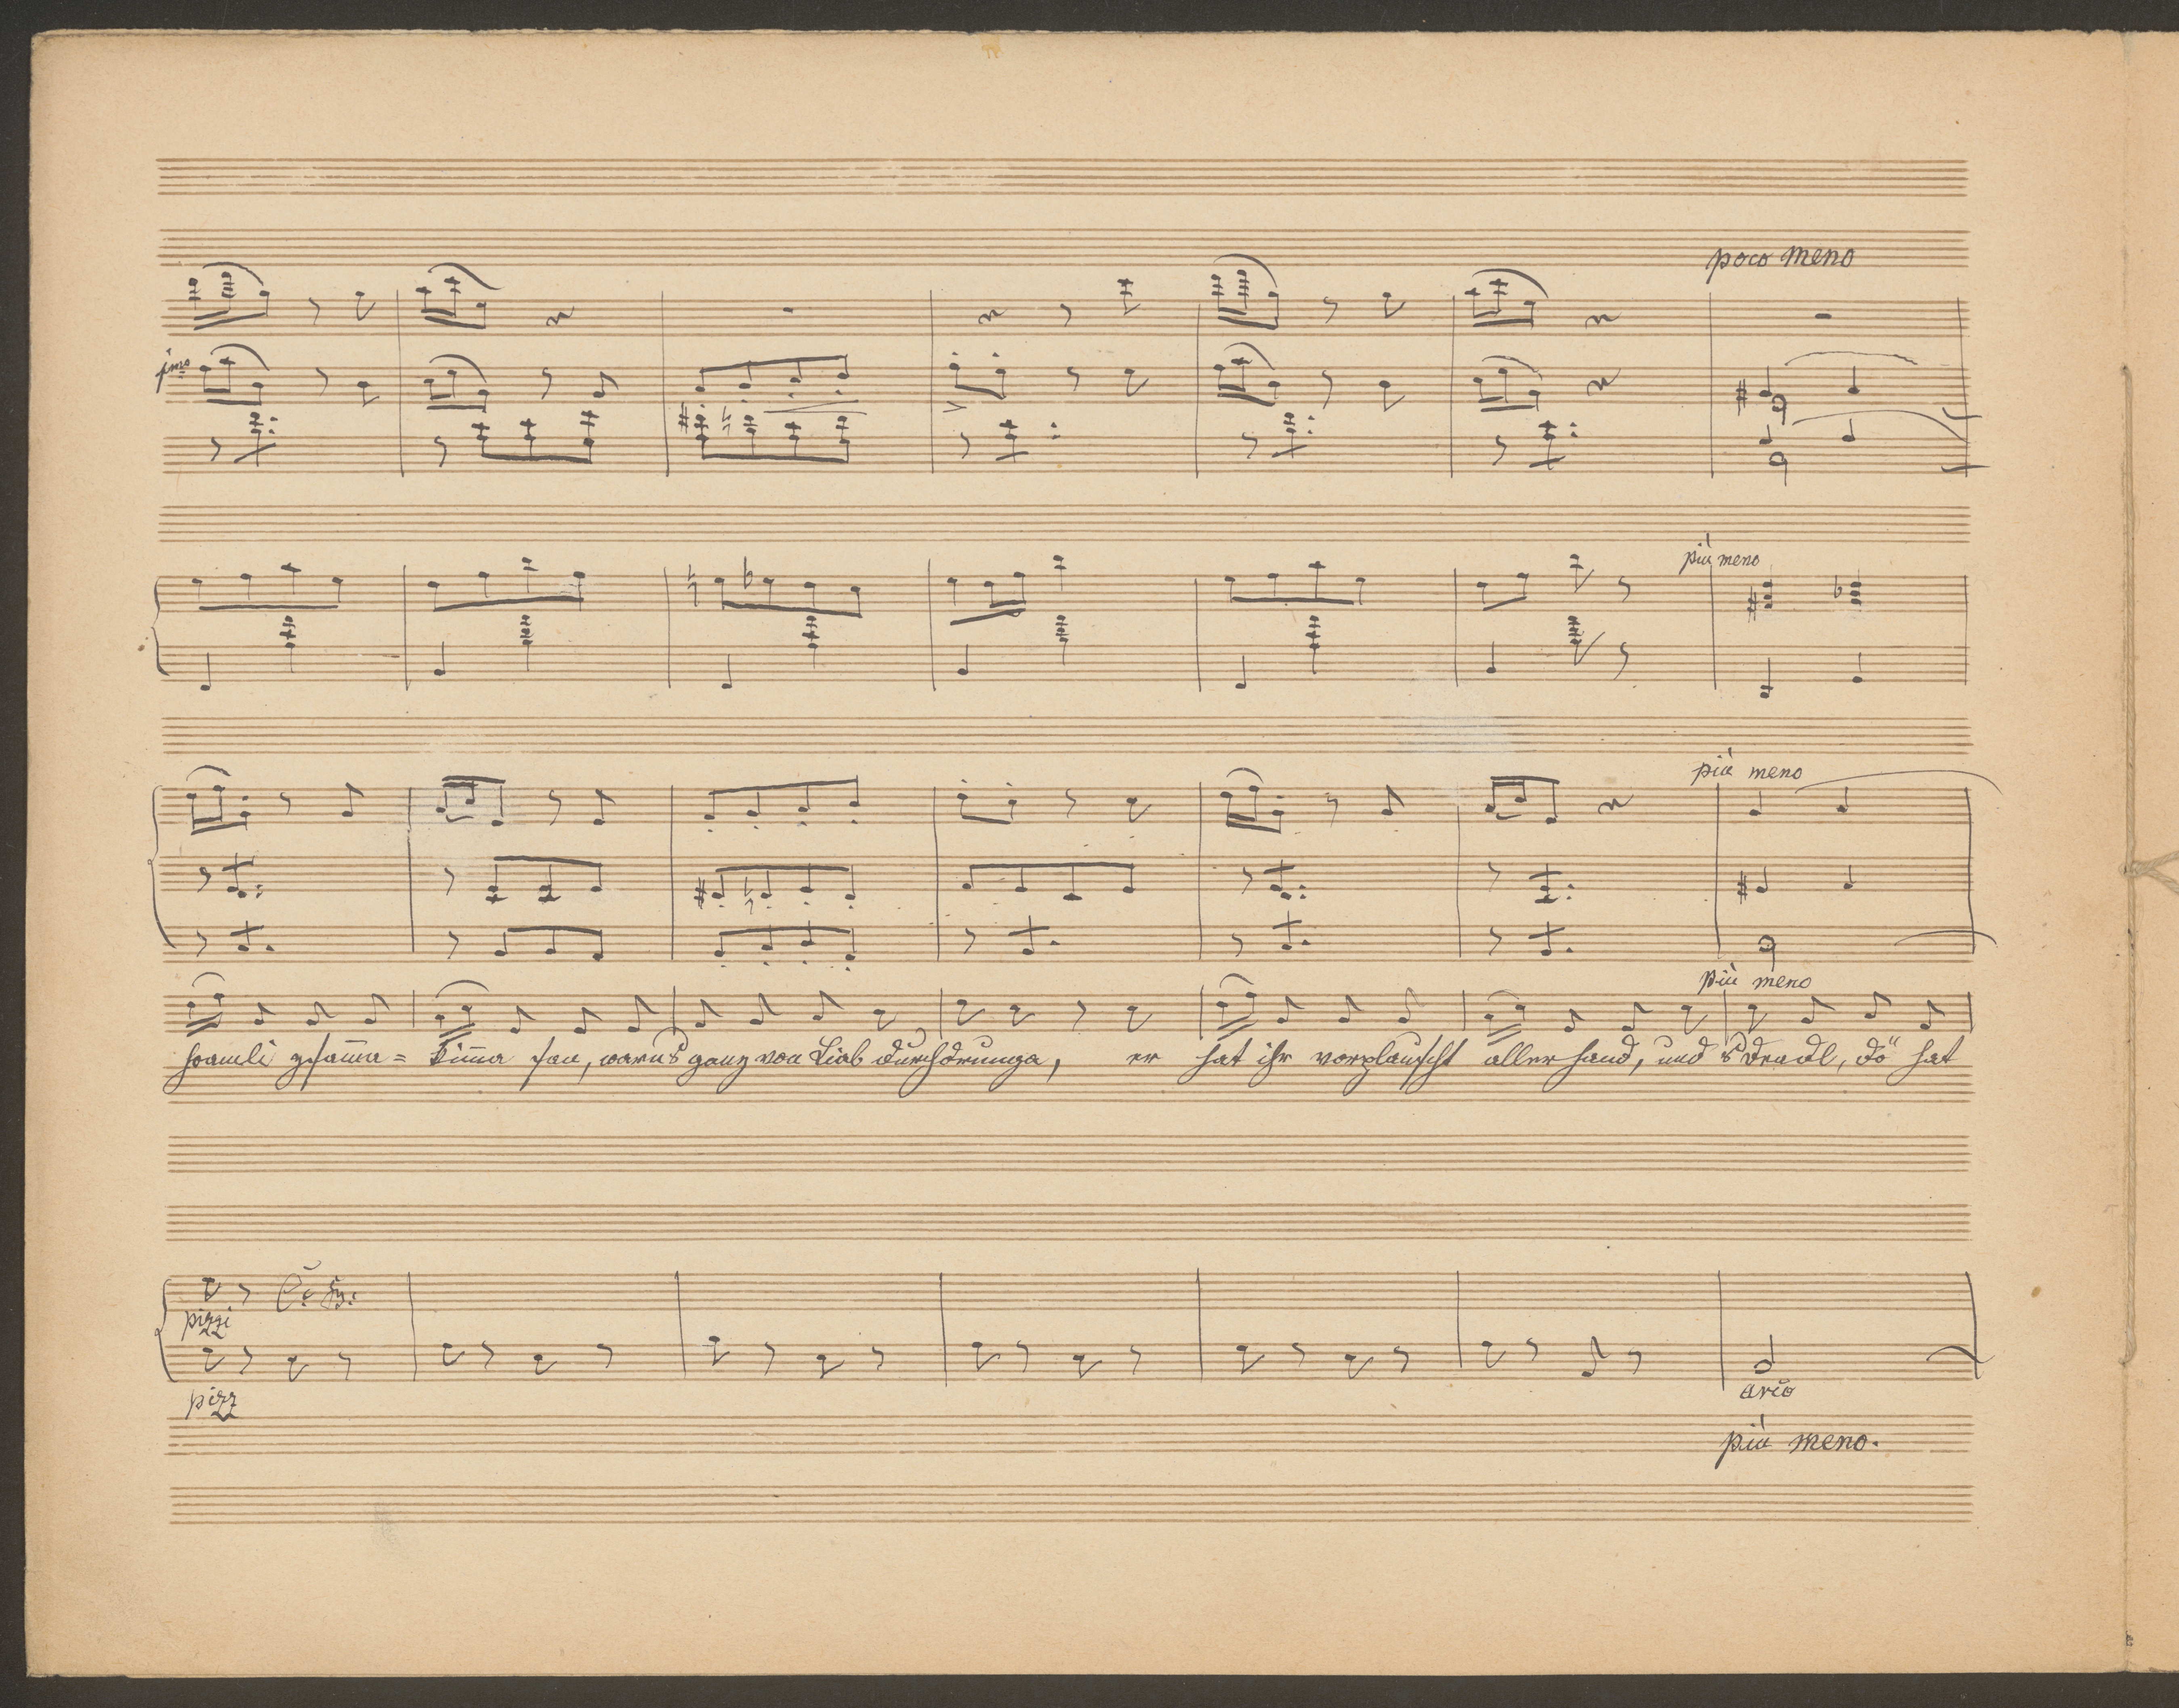 poco meno
più meno
più meno
più meno
hoamli zsamma= kumma san, warns ganz von Liab durchdrunga, er hat ihr vorplauscht allerhand, und s'Deadl, dö hat
pizzi
pizz
arco
più meno.